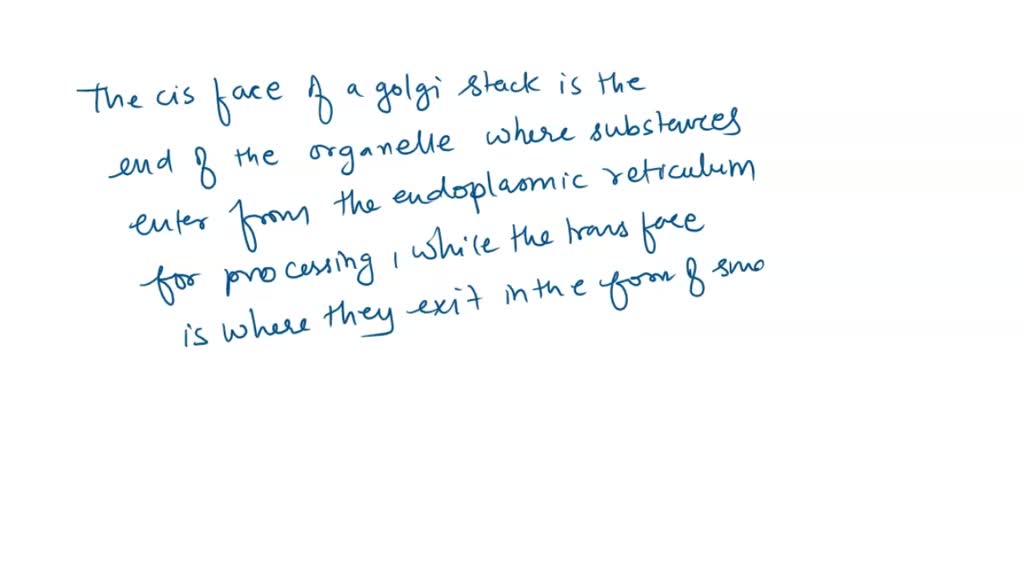 The cis face of a golgi stack is the
end of the organelle where substances
enter from the endoplasmic reticulum
for processing, while the trans face
is where they exit in the form of sma